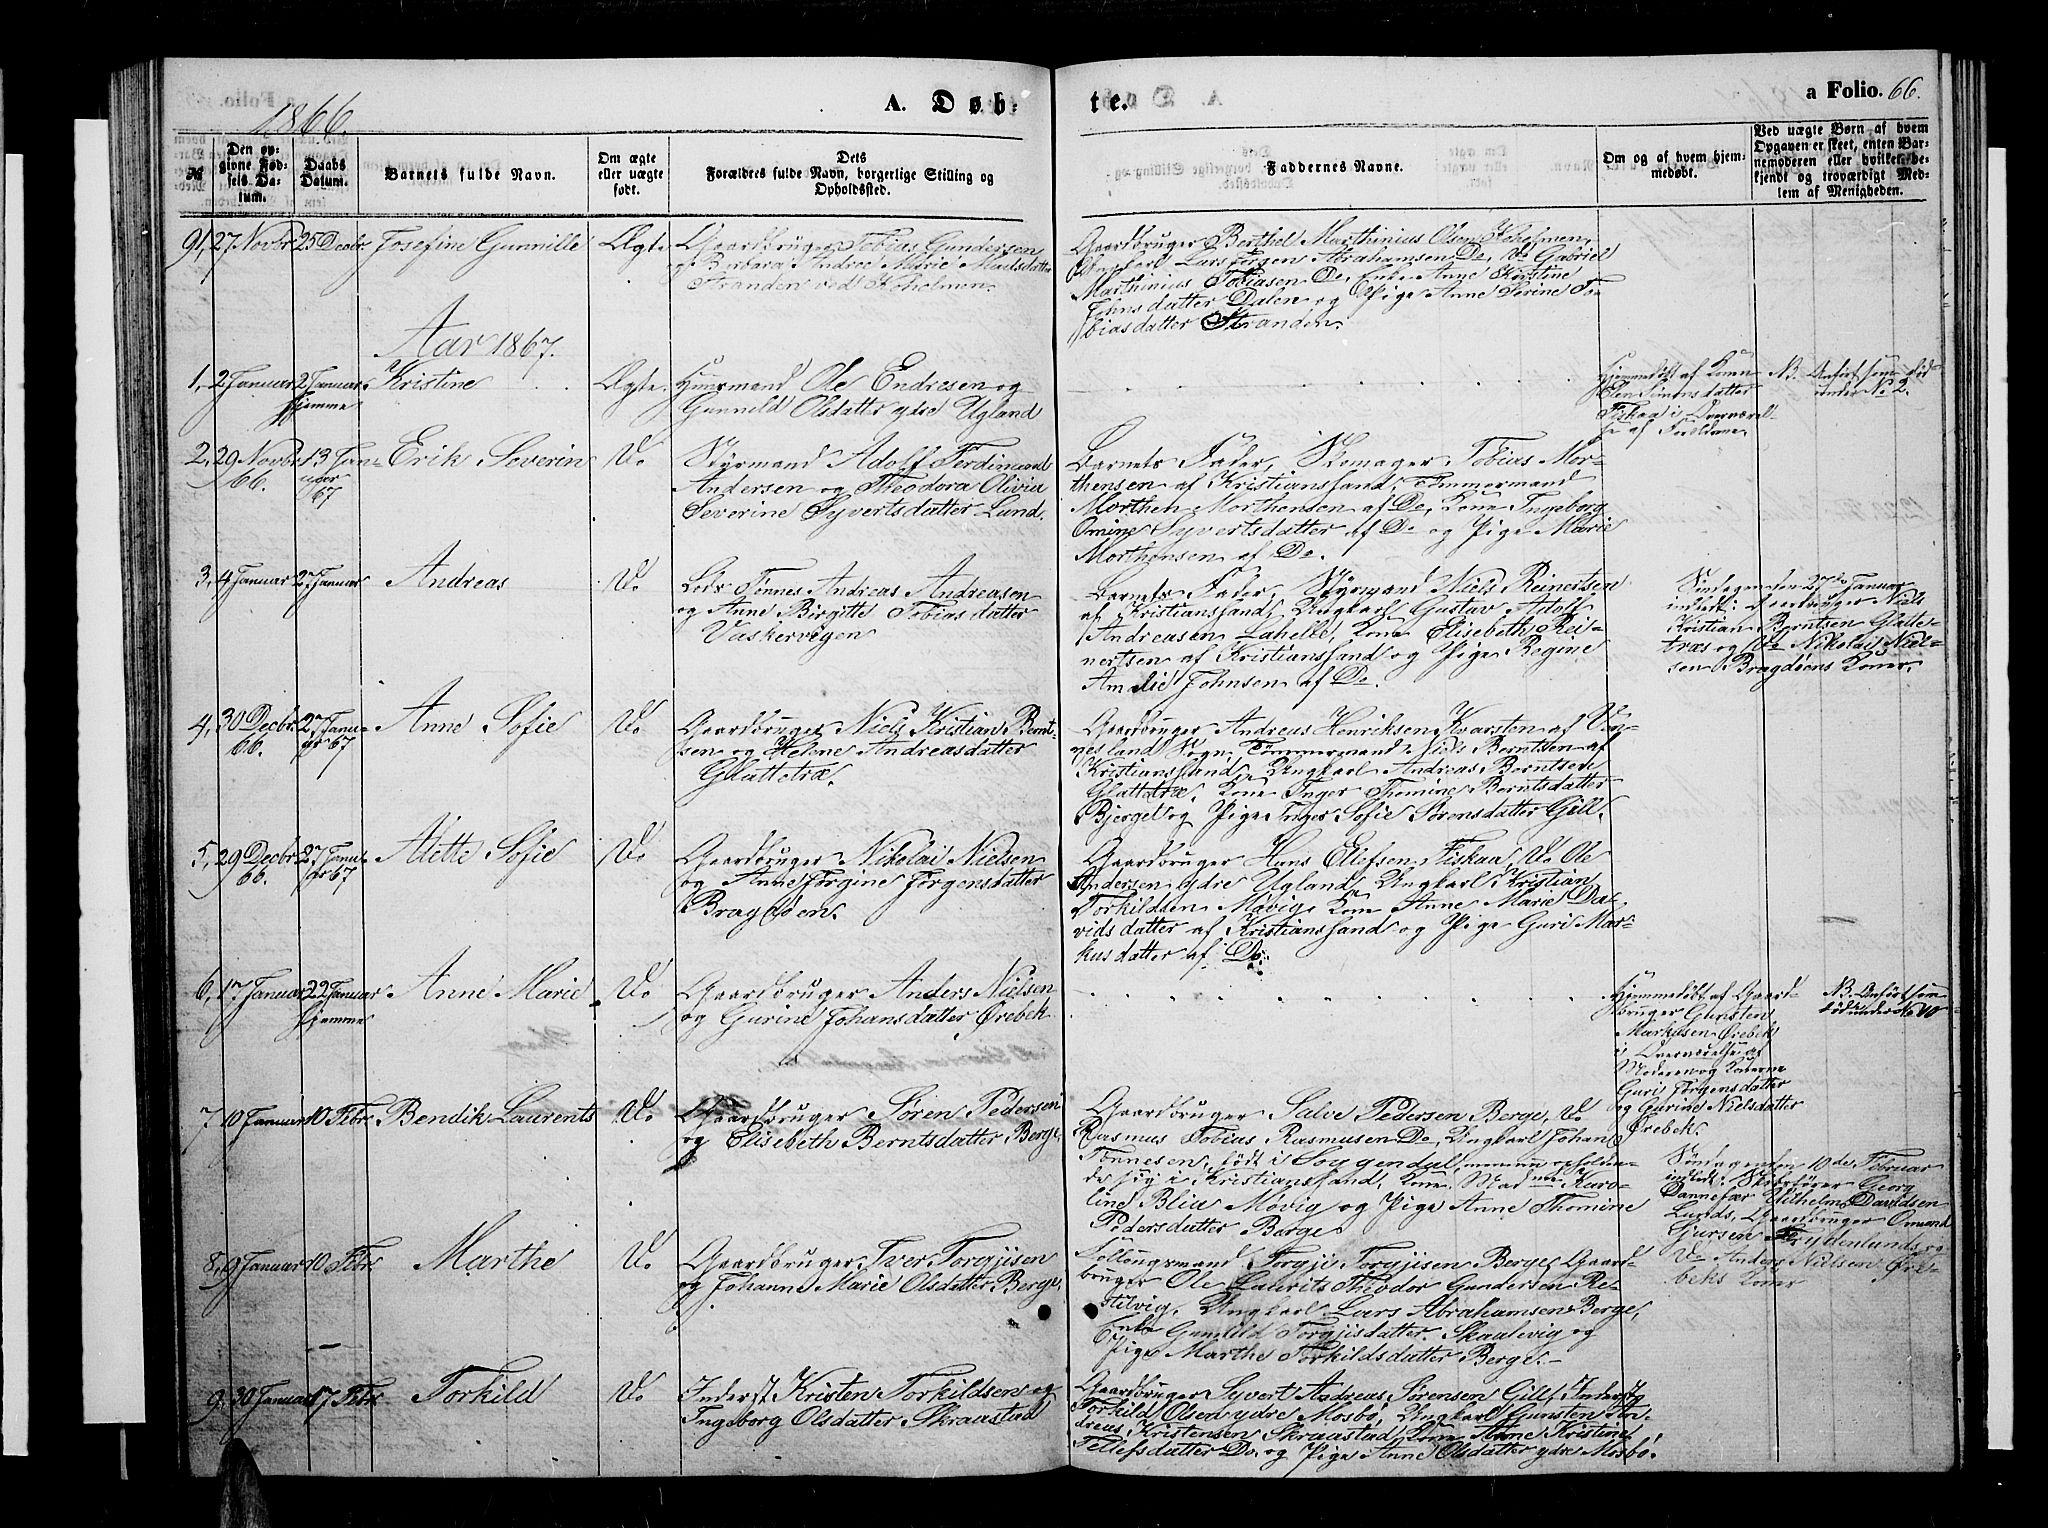 1866.
A. Døb:
te.
a Folio. 66.
№
Den op-
givne Fød-
sels Da-
tum.
Daabs
Datum.
Barnets fulde Navn.
Om ægte
eller uægte
født.
Dets
Forældres fulde Navn, borgerlige Stilling og
Opholdssted.
Faddernes Navne.
Om og af hvem hjem-
medøbt.
Ved uægte Børn af hvem
Opgaven er skeet, enten Bar-
nemoderen eller hvilket be-
kjendt og troværdigt Med-
lem af Menigheden.
91, 27 Novbr 25 Decbr. Josefine Gunnille Ægte.
Gaardbruger Tobias Gundersen
og Barbara Andrea Marie
Stranden ved
Gaardbruger Berthel Marthinius Olsen
Ungkarl Lars Jørgen Abrahamsen Do, Do Gabriel
Marthinius Tobiasen Do, Enke Anne Kirstine
Johnsdatter Dalen og Pige Anne Serine To-
biasdatter Stranden.
Aar 1867.
1, 2 Januar 2 Januar Kristine Ægte.
hjemme
Huusmand Ole Endresen og
Gunnild Olsdatter ydre Ugland
Hjemmedøbt af Kone
Elen Simonsdatter
Fiskaa i Overværel-
se af Forældrene.
NB. Anført som død
under No 2.
2, 29 Novbr 13 Jan- Erik Severin Do
66. uar
67
Styrmand Adolf Ferdinand
Andersen og Theodora Olivia
Severine Syvertsdatter Lund.
Barnets Fader, Skomager Tobias Mor-
thensen af Kristianssand, Tømmermand
Morthen Morthensen af Do, Kone Ingeborg
Omine Syvertsdatter af Do og Pige Marie
Morthensen af Do.
3, 4 Januar 27 Januar Andreas Do
Lods Tønnes Andreas Andreasen
og Anne Birgitte Tobiasdatter
Vaskervigen
Barnets Fader, Styrmand Niels Reinertsen
af Kristianssand, Ungkarl Gustav Adolf
Andreasen Lahelle, Kone Elisebeth Rei-
nertsen af Kristianssand og Pige Regine
Amalie Johnsen af Do.
Søndagen den 27de Januar
indledt: Gaardbruger Niels
Kristian Berntsen Glatte-
træs og Do Nikolai Niel-
sen Bragdøens Koner.
4, 30 Decbr. 27 Janu- Anne Sofie Do
66. ar 67
Gaardbruger Niels Kristian Bernt-
sen og Helene Andreasdatter
Glattetræ.
Gaardbruger Andreas Henriksen Kvarsten af
Sogn, Tømmermand Niels Berntsen af
Kristianssand, Ungkarl Andreas Berntsen
Glattetræ, Kone Inger Thomine Berntsdatter
Bjerget og Pige Inger Sofie Sørensdatter Gill.
5, 29 Decbr 27 Janu- Alette Sofie Do
66. ar 67
Gaardbruger Nikolai Nielsen
og Anne Jørgine Jørgensdatter
Bragdøen.
Gaardbruger Hans Eliefsen Fiskaa, Do Ole
Andersen ydre Ugland, Ungkarl Kristian
Torkildsen Møvig, Kone Anne Marie Da-
vidsdatter af Kristianssand og Pige Guri Mar-
kusdatter af Do.
6, 17 Januar 22 Januar Anne Marie Do
hjemme
Gaardbruger Anders Nielsen
og Gurine Johansdatter Ørebek
Hjemmedøbt af Gaard-
bruger Gunsten
Markusen Ørebek
i Overværelse af
Moderen og Konerne
Guri Jørgensdatter
og Gurine Nielsdatter
Ørebek.
NB. Anført som
død under No 10
7, 10 Januar 10 Febr. Bendik Laurents Do
Gaardbruger Søren Pedersen
og Elisebeth Berntsdatter Berge
Gaardbruger Salve Pedersen Berge, Do
Rasmus Tobias Rasmusen Do, Ungkarl Johan
Tønnesen, født i Soggendal, opholden-
de sig i Kristianssand, Kone Karo-
line Blia Møvig og Pige Anne Thomine
Pedersdatter Berge
Søndagen den 10de Februar
indledt: Georg
Dannefær Wilhelm Davidsen
Lunds, Gaardbruger Omund
Frydenlunds og
Do Anders Nielsen Øre-
beks Koner
8, 9 Januar 10 Febr. Marthe Do
Gaardbruger Iver Torgjisen
og Johanne Marie Olsdatter Berge.
Torgji Torgjisen Berge, Gaard-
bruger Ole Laurits Theodor Gundersen Re-
stilvig, Ungkarl Lars Abrahamsen Berge,
Enke Gunnild Torgjisdatter Skaalevig og
Pige Marthe Torkildsdatter Berge.
9, 30 Januar 17 Febr. Torkild Do
Inderst Kristen Torkildsen og
Ingeborg Olsdatter Skraastad
Gaardbruger Syvert Andreas Sørensen Gill, Inderst
Torkild Olsen ydre Mosbø, Ungkarl Gunsten An-
dreas Kristensen Skraastad, Kone Anne Kristine
Tellefsdatter Do. og Pige Anne Olsdatter ydre Mosbø.